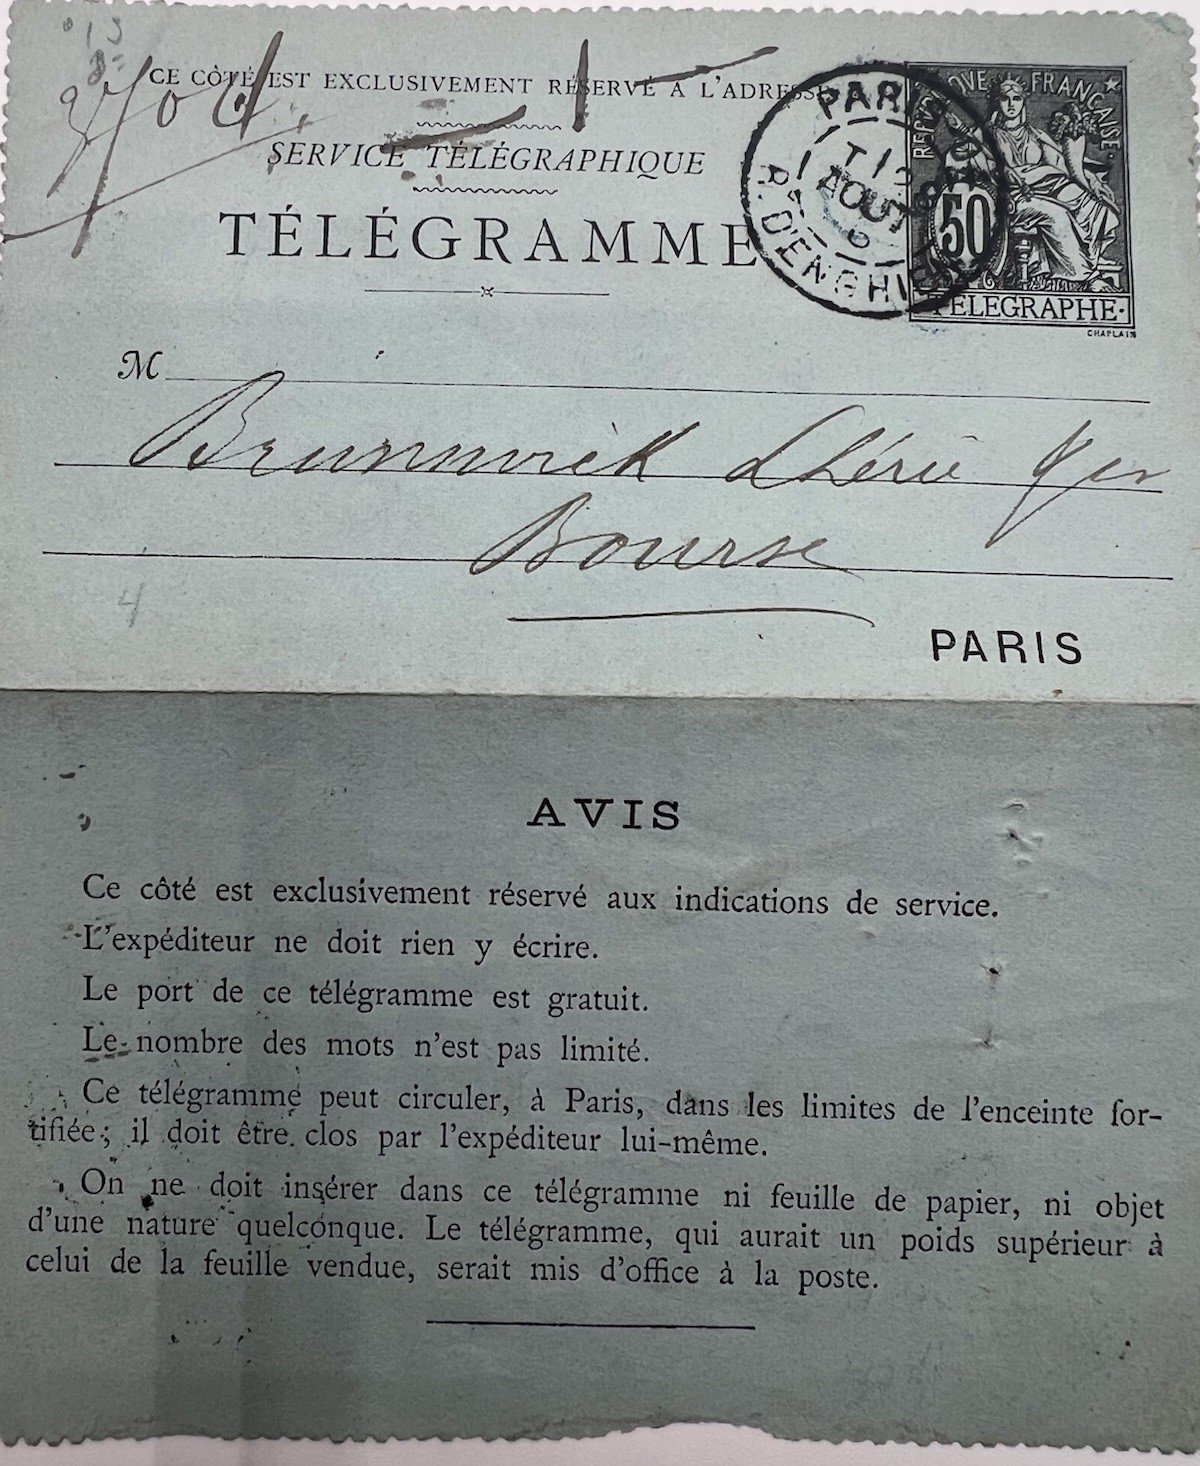 CE CÔTÉ EST EXCLUSIVEMENT RÉSERVÉ A L'ADRESSE
SERVICE TÉLÉGRAPHIQUE
TÉLÉGRAMME
PARIS
AOUT
R. D'ENGHIEN
REPUBLIQUE FRANÇAISE
50
TELEGRAPHE
CHAPLAIN
M
Brunswick Lhérie
Bourse
4
PARIS
AVIS
Ce côté est exclusivement réservé aux indications de service.
L'expéditeur ne doit rien y écrire.
Le port de ce télégramme est gratuit.
Le nombre des mots n'est pas limité.
Ce télégramme peut circuler, à Paris, dans les limites de l'enceinte for-
tifiée; il doit être clos par l'expéditeur lui-même.
On ne doit insérer dans ce télégramme ni feuille de papier, ni objet
d'une nature quelconque. Le télégramme, qui aurait un poids supérieur à
celui de la feuille vendue, serait mis d'office à la poste.